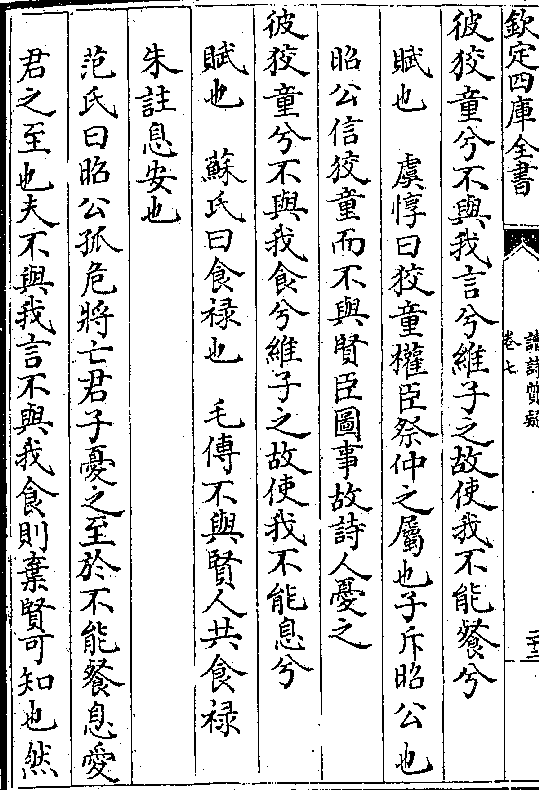 欽定四庫全書
讀詩質疑
卷七
二十三
彼狡童兮不與我言兮維子之故使我不能餐兮
賦也　虞惇曰狡童權臣祭仲之屬也子斥昭公也
昭公信狡童而不與賢臣圖事故詩人憂之
彼狡童兮不與我食兮維子之故使我不能息兮
賦也　蘇氏曰食禄也　毛傳不與賢人共食禄
朱註息安也
范氏曰昭公孤危將亡君子憂之至於不能餐息愛
君之至也夫不與我言不與我食則棄賢可知也然